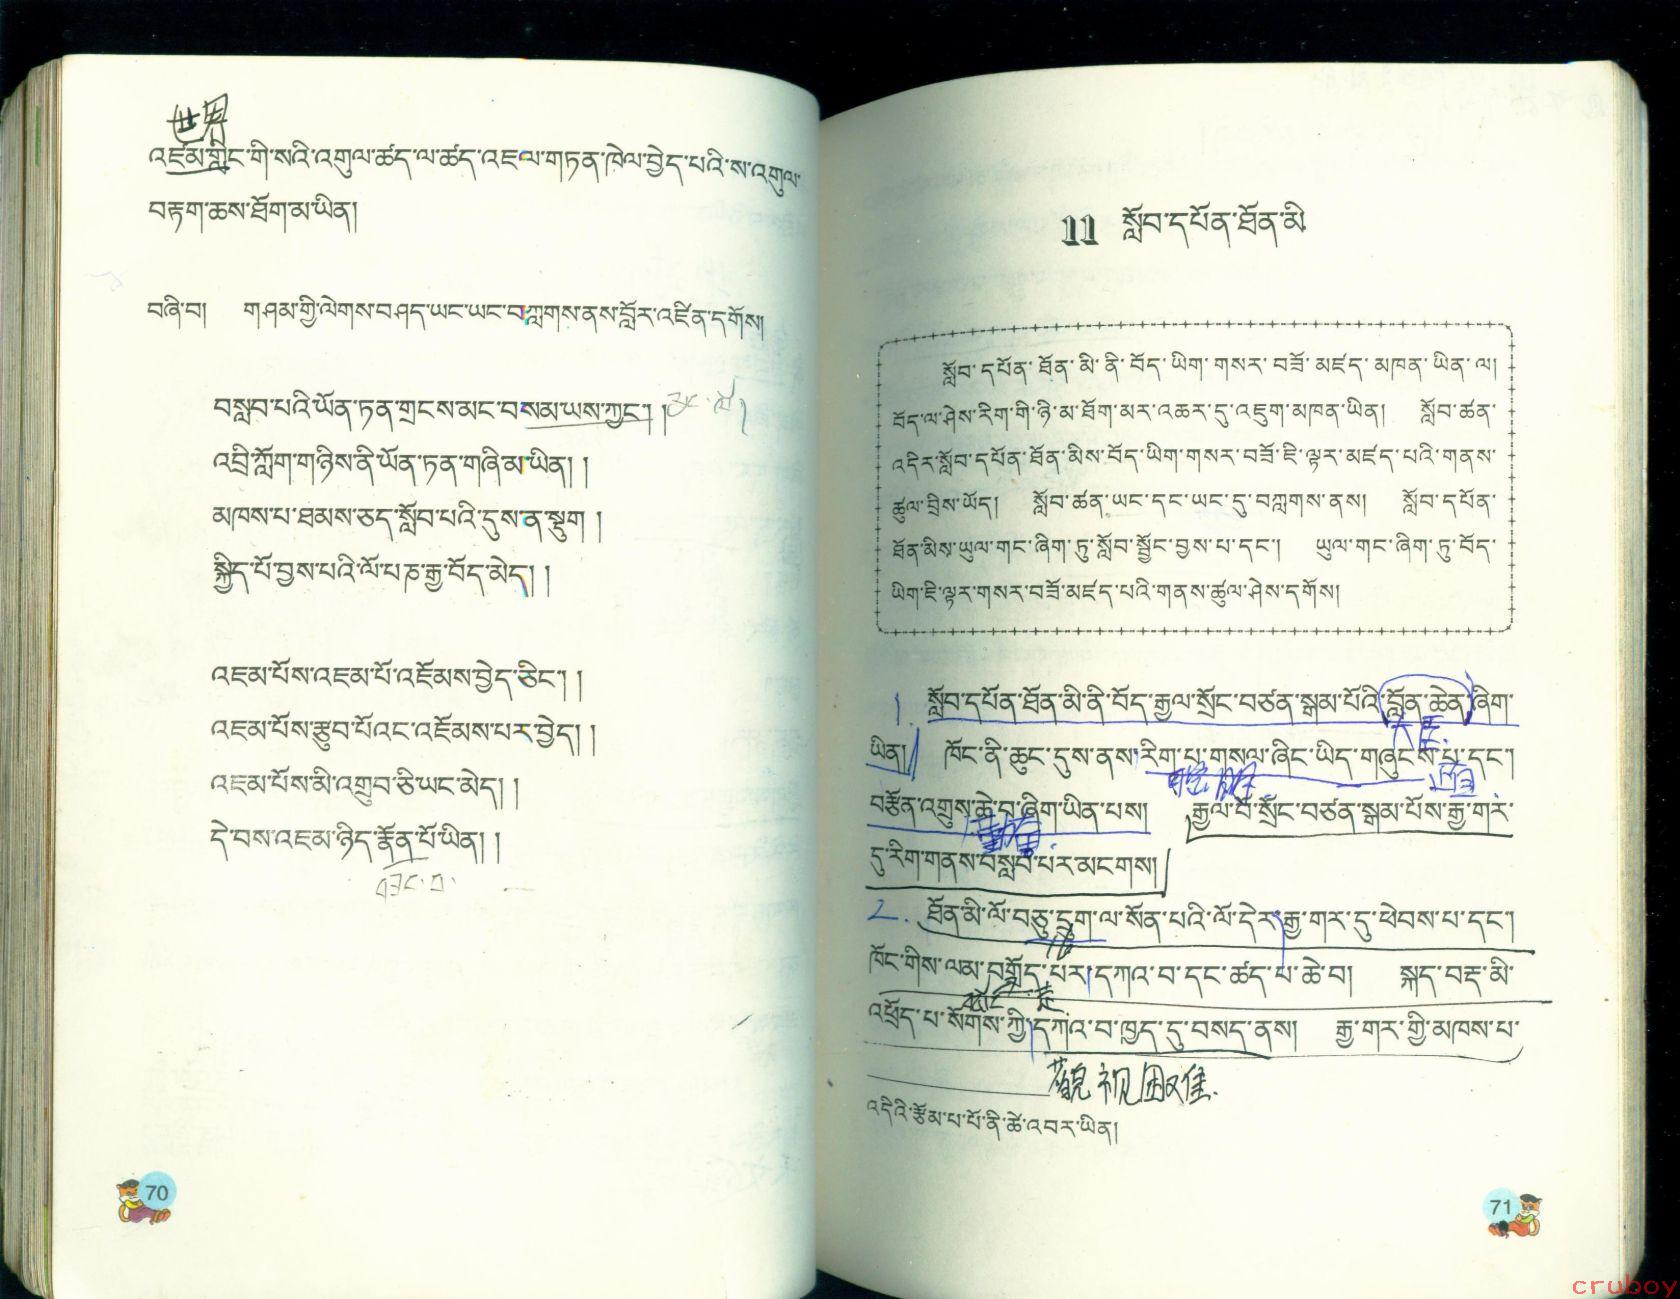 世界
འཛམ་གླིང་གི་སའི་འགུལ་ཚད་ལ་ཚད་འཇལ་གཏན་ཁེལ་བྱེད་པའི་ས་འགུལ་
བརྟག་ཆས་ཐོག་མ་ཡིན།
བཞི་བ། གཤམ་གྱི་ལེགས་བཤད་ཡང་ཡང་བཀླགས་ནས་བློར་འཛིན་དགོས།
བསླབ་པའི་ཡོན་ཏན་གྲངས་མང་བསམ་ཡས་ཀྱང་། །
འབྲི་ཀློག་གཉིས་ནི་ཡོན་ཏན་གཞི་མ་ཡིན། །
མཁས་པ་ཐམས་ཅད་སློབ་པའི་དུས་ན་སྡུག །
སྐྱིད་པོ་བྱས་པའི་ལོ་པཎ་རྒྱ་བོད་མེད། །
འཇམ་པོས་འཇམ་པོ་འཇོམས་བྱེད་ཅིང་། །
འཇམ་པོས་རྩུབ་པོའང་འཇོམས་པར་བྱེད། །
འཇམ་པོས་མི་འགྲུབ་ཅི་ཡང་མེད། །
དེ་བས་འཇམ་ཉིད་རྣོན་པོ་ཡིན། །
70
11 སློབ་དཔོན་ཐོན་མི
སློབ་དཔོན་ཐོན་མི་ནི་བོད་ཡིག་གསར་བཟོ་མཛད་མཁན་ཡིན་ལ།
བོད་ལ་ཤེས་རིག་གི་ཉི་མ་ཐོག་མར་འཆར་དུ་འཇུག་མཁན་ཡིན། སློབ་ཚན་
འདིར་སློབ་དཔོན་ཐོན་མིས་བོད་ཡིག་གསར་བཟོ་ཇི་ལྟར་མཛད་པའི་གནས་
ཚུལ་བྲིས་ཡོད། སློབ་ཚན་ཡང་དང་ཡང་དུ་བཀླགས་ནས། སློབ་དཔོན་
ཐོན་མིས་ཡུལ་གང་ཞིག་ཏུ་སློབ་སྦྱོང་བྱས་པ་དང་། ཡུལ་གང་ཞིག་ཏུ་བོད་
ཡིག་ཇི་ལྟར་གསར་བཟོ་མཛད་པའི་གནས་ཚུལ་ཤེས་དགོས།
1. སློབ་དཔོན་ཐོན་མི་ནི་བོད་རྒྱལ་སྲོང་བཙན་སྒམ་པོའི་བློན་ཆེན་ཞིག་
大臣
ཡིན། ཁོང་ནི་ཆུང་དུས་ནས་རིག་པ་གསལ་ཞིང་ཡིད་གཞུངས་པ་དང་།
བརྩོན་འགྲུས་ཆེ་བ་ཞིག་ཡིན་པས། རྒྱལ་པོ་སྲོང་བཙན་སྒམ་པོས་རྒྱ་གར་
དུ་རིག་གནས་བསླབ་པར་མངགས།
2. ཐོན་མི་ལོ་བཅུ་དྲུག་ལ་སོན་པའི་ལོ་དེར་རྒྱ་གར་དུ་ཕེབས་པ་དང་།
16
ཁོང་གིས་ལམ་བགྲོད་པར་དཀའ་བ་དང་ཚད་པ་ཆེ་བ། སྐད་བརྡ་མི་
འཕྲོད་པ་སོགས་ཀྱི་དཀའ་བ་ཁྱད་དུ་བསད་ནས། རྒྱ་གར་གྱི་མཁས་པ་
藐视
འདིའི་རྩོམ་པ་པོ་ནི་ཚེ་འབར་ཡིན།
71
cruboy